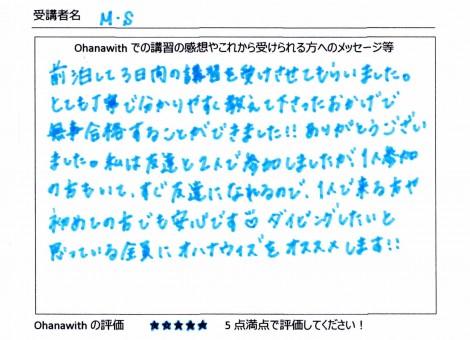 受講者名 M.S
Ohanawith での講習の感想やこれから受けられる方へのメッセージ等
前泊して3日間の講習を受けさせてもらいました。
とても丁寧で分かりやすく教えて下さったおかげで
無事合格することができました!! ありがとうござい
ました。私は友達と2人で参加しましたが、1人参加
の方もいて、すぐ友達になれるので、1人で来る方や
初めての方でも安心です ダイビングしたいと
思っている全員にオハナウィズをオススメします!!
Ohanawith の評価 ★★★★★ 5 点満点で評価してください！